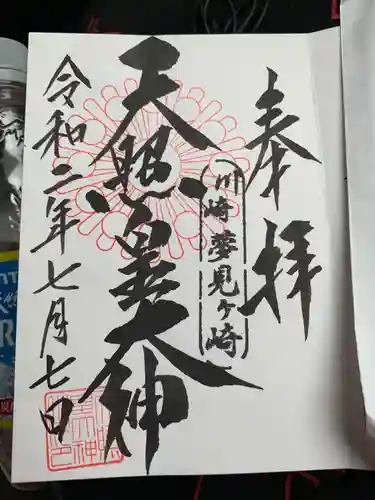 奉拝
川崎 夢見ヶ崎
天照皇大神
令和二年七月七日